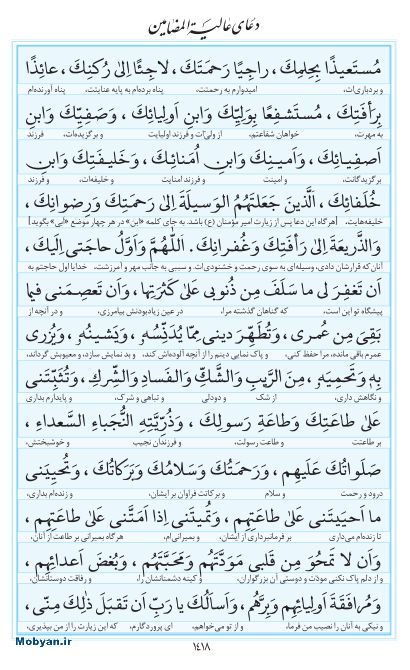 دعای عالیة المضامین
مُستَعیذًا بِحِلمِكَ ، راجِیًا رَحمَتَكَ ، لاجِئًا اِلیٰ رُکنِكَ ، عائِذًا
و بردباری‌ات، امیدوارم به رحمتت، پناه برده‌ام به پایه عنایتت، پناه آورنده‌ام
بِرَأفَتِكَ ، مُستَشفِعًا بِوَلِیِّكَ وَابنِ اَولِیائِكَ ، وَصَفِیِّكَ وَابنِ
به مهرت، خواهان شفاعتم، از ولی‌ات و فرزند اولیایت و برگزیده‌ات، فرزند
اَصفِیائِكَ ، وَاَمینِكَ وَابنِ اُمَنائِكَ ، وَخَلیفَتِكَ وَابنِ
برگزیدگانت، و امینت و فرزند امنایت و خلیفه‌ات، و فرزند
خُلَفائِكَ ، اَلَّذینَ جَعَلتَهُمُ الوَسیلَةَ اِلیٰ رَحمَتِكَ وَرِضوانِكَ ،
خلیفه‌هایت. [هرگاه این دعا پس از زیارت امیر مؤمنان (ع) باشد، به جای کلمه «ابن» در هر چهار موضع «ابی» بگوید]
وَالذَّریعَةَ اِلیٰ رَأفَتِكَ وَغُفرانِكَ. اَللّٰهُمَّ وَاَوَّلُ حاجَتی اِلَیكَ ،
آنان که قرارشان دادی، وسیله‌ای به سوی رحمت و خشنودی‌ات. و سببی به جانب مهر و آمرزشت. خدایا اول حاجتم به
اَن تَغفِرَ لی ما سَلَفَ مِن ذُنوبی عَلیٰ کَثرَتِها ، وَاَن تَعصِمَنی فیما
پیشگاه تو این است، که گناهان گذشته مرا، در عین زیادبودنش بیامرزی، و در آنچه از
بَقِیَ مِن عُمری ، وَتُطَهِّرَ دینی مِمّا یُدَنِّسُهُ ، وَیَشینُهُ ، وَیُزری
عمرم باقی مانده، مرا حفظ کنی، و پاک نمایی دینم را از آنچه آلوده‌اش کند، و بد نمایش سازد، و معیوبش گرداند،
بِهِ وَتَحمِیَهُ ، مِنَ الرَّیبِ وَالشَّكِّ وَالفَسادِ وَالشِّركِ ، وَتُثَبِّتَنی
و نگاهش داری، از شک و دودلی و تباهی و شرک، و پایدارم بداری
عَلیٰ طاعَتِكَ وَطاعَةِ رَسولِكَ ، وَذُرِّیَّتِهِ النُّجَباءِ السُّعَداءِ ،
بر طاعتت و طاعت رسولت، و فرزندان نجیب و خوشبختش،
صَلَواتُكَ عَلَیهِم ، وَرَحمَتُكَ وَسَلامُكَ وَبَرَکاتُكَ ، وَتُحیِیَنی
درود و رحمت و سلام و برکاتت فراوان بر ایشان، و زنده‌ام بداری،
ما اَحیَیتَنی عَلیٰ طاعَتِهِم ، وَتُمیتَنی اِذا اَمَتَّنی عَلیٰ طاعَتِهِم ،
تا زنده‌ام می‌داری بر فرمانبرداری از ایشان، و بمیرانی‌ام، هرگاه بمیرانی بر طاعت از آنان،
وَاَن لا تَمحُوَ مِن قَلبی مَوَدَّتَهُم وَمَحَبَّتَهُم ، وَبُغضَ اَعدائِهِم ،
و از دلم پاک نکنی مودّت و دوستی آن بزرگواران، و کینه دشمنانشان را، و رفاقت دوستانشان،
وَمُرافَقَةَ اَولِیائِهِم وَبِرَّهُم ، وَاَساَلُكَ یا رَبِّ اَن تَقبَلَ ذٰلِكَ مِنّی ،
و نیکی به آنان را نصیب من فرما، و از تو می‌خواهم، ای پروردگارم، که این زیارت را از من بپذیری،
۱۴۱۸
Mobyan.ir